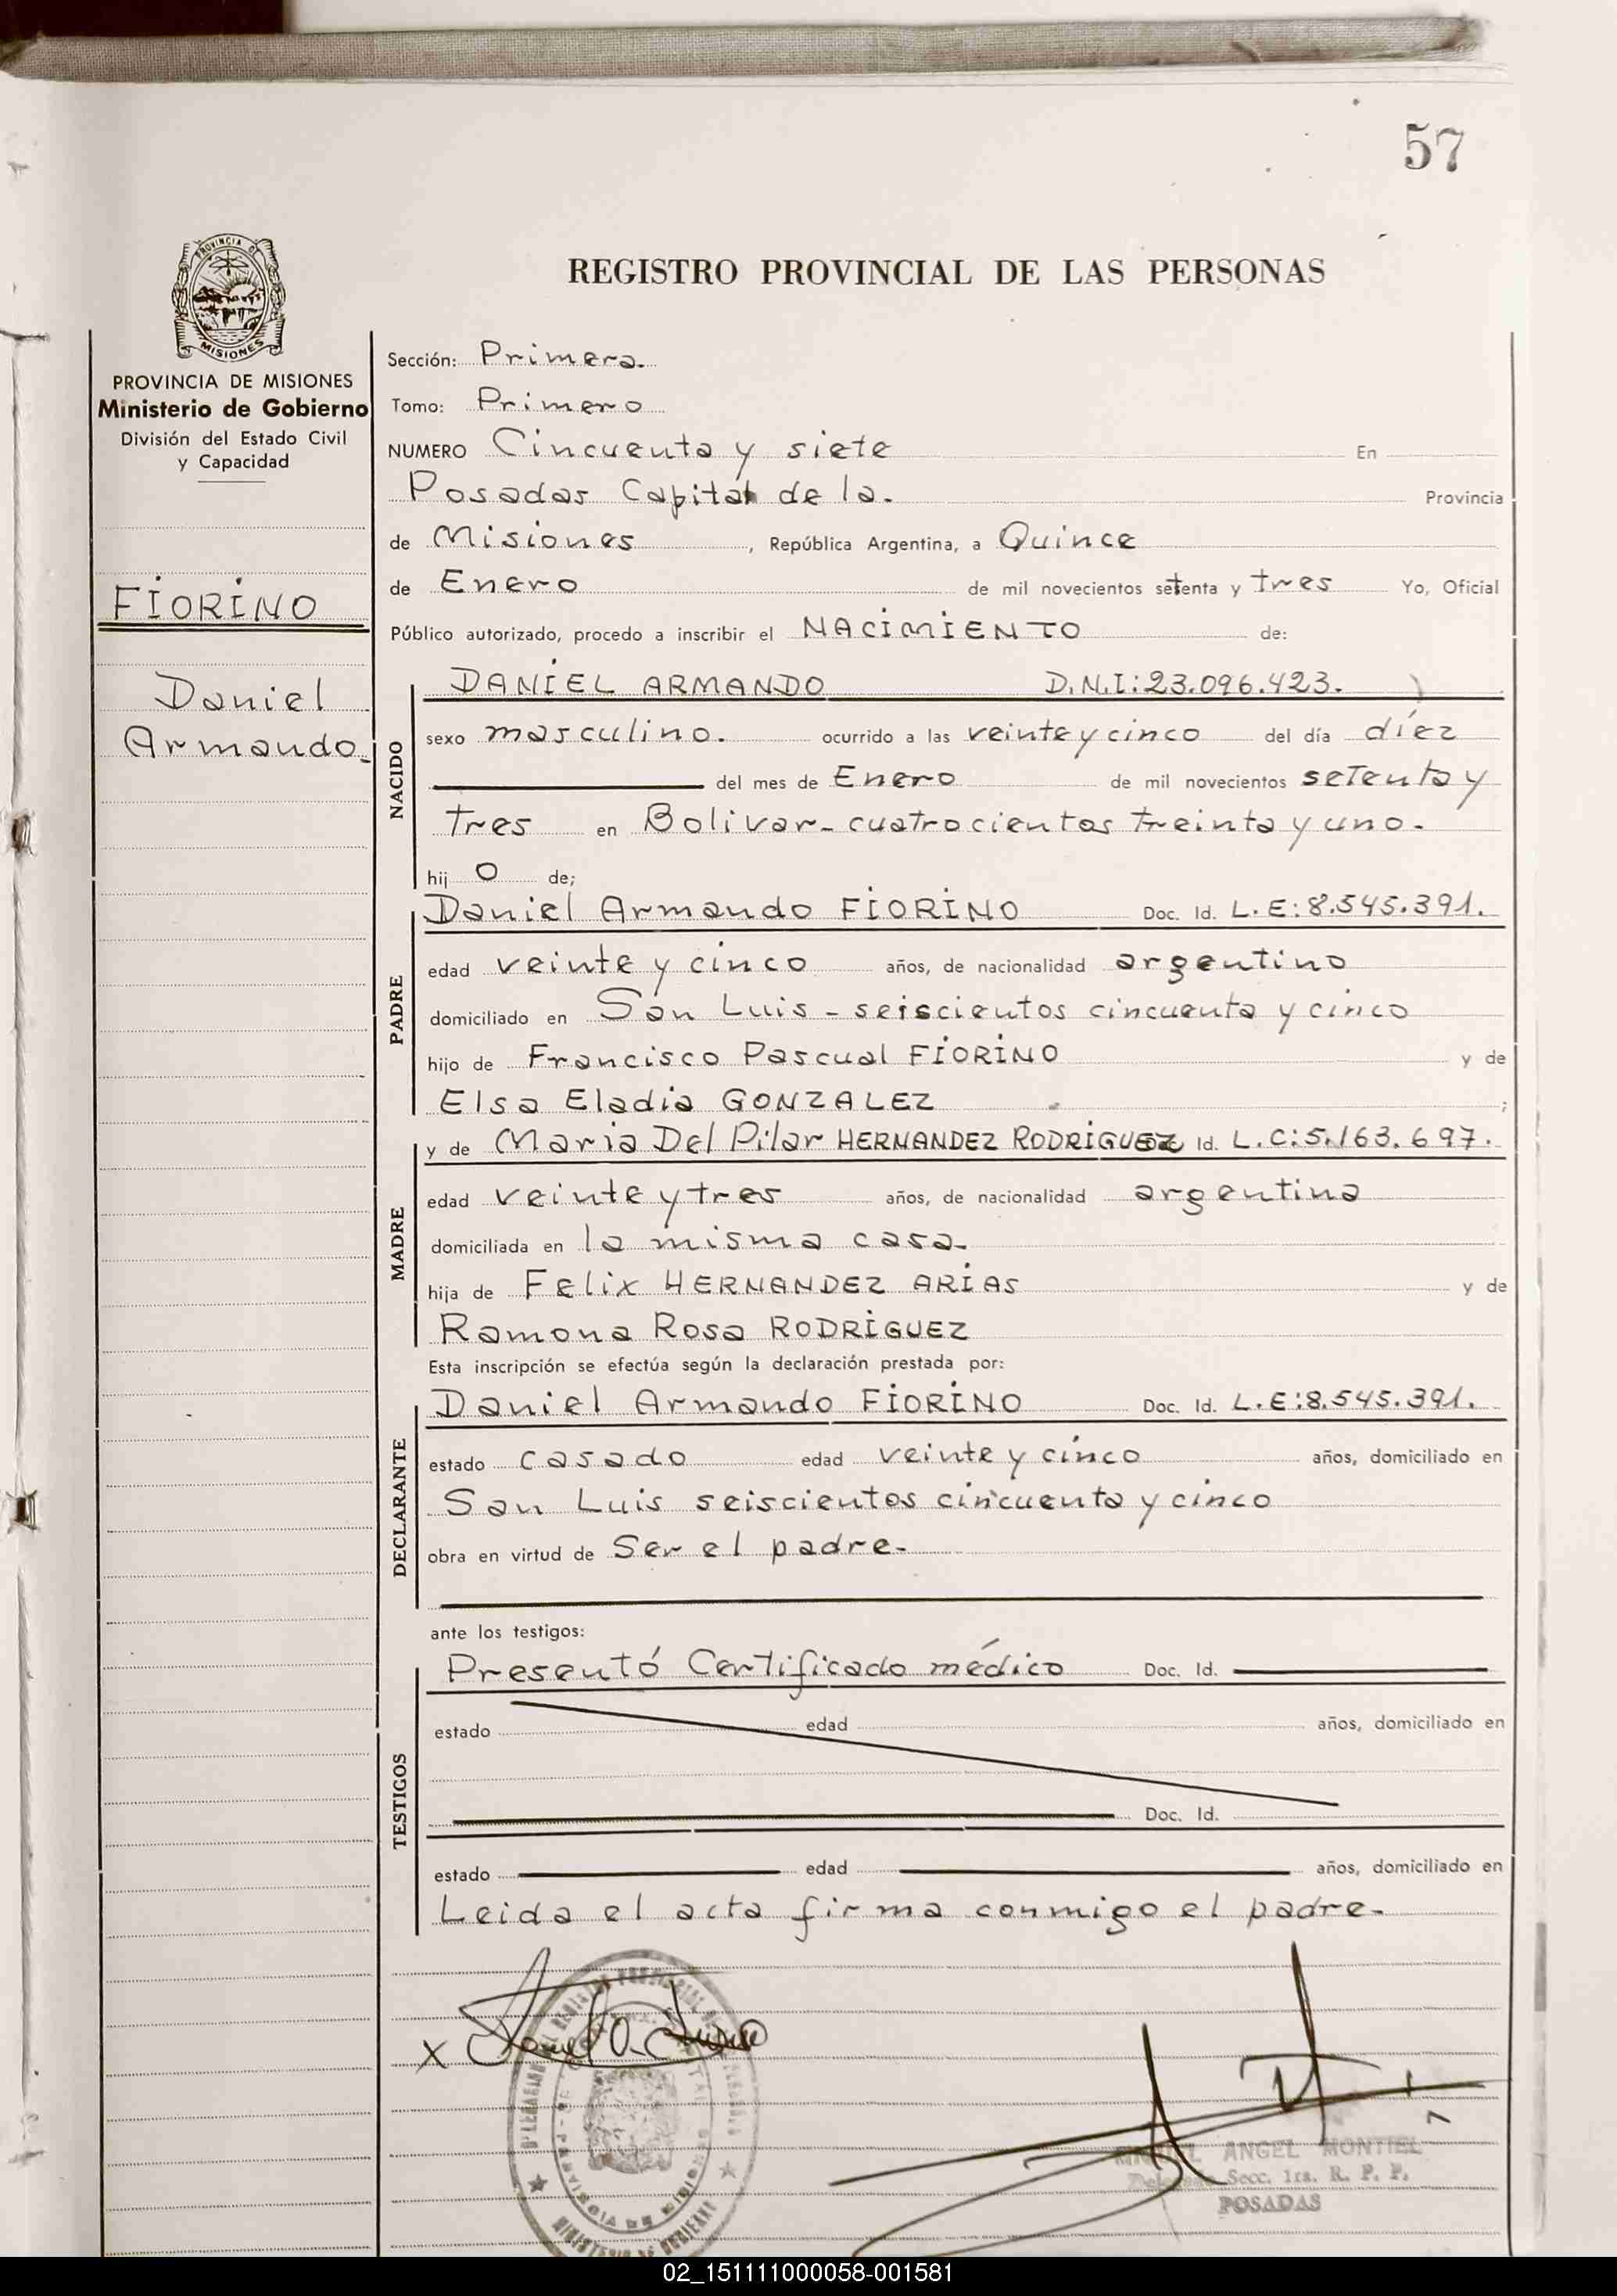 57
REGISTRO PROVINCIAL DE LAS PERSONAS
PROVINCIA DE
MISIONES
PROVINCIA DE MISIONES
Ministerio de Gobierno
División del Estado Civil
y Capacidad
FIORINO
Daniel
Armando.
Sección: Primera.
Tomo: Primero
NUMERO Cincuenta y siete En
Posadas Capital de la. Provincia
de Misiones, República Argentina, a Quince
de Enero de mil novecientos setenta y tres Yo, Oficial
Público autorizado, procedo a inscribir el NACIMIENTO de:
NACIDO
DANIEL ARMANDO D.N.I: 23.096.423.
sexo masculino. ocurrido a las veinte y cinco del día díez
del mes de Enero de mil novecientos setenta y
tres en Bolivar - cuatrocientos treinta y uno.
hij o de;
PADRE
Daniel Armando FIORINO Doc. Id. L.E: 8.545.391.
edad veinte y cinco años, de nacionalidad argentino
domiciliado en San Luis - seiscientos cincuenta y cinco
hijo de Francisco Pascual FIORINO y de
Elsa Eladia GONZALEZ ;
MADRE
y de Maria Del Pilar HERNANDEZ RODRIGUEZ Id. L.C: 5.163.697.
edad veinte y tres años, de nacionalidad argentina
domiciliada en la misma casa.
hija de Felix HERNANDEZ ARIAS y de
Ramona Rosa RODRIGUEZ
Esta inscripción se efectúa según la declaración prestada por:
DECLARANTE
Daniel Armando FIORINO Doc. Id. L.E: 8.545.391.
estado casado edad veinte y cinco años, domiciliado en
San Luis seiscientos cincuenta y cinco
obra en virtud de Ser el padre.
ante los testigos:
TESTIGOS
Presentó Certificado médico Doc. Id.
estado edad años, domiciliado en
Doc. Id.
estado edad años, domiciliado en
Leida el acta firma conmigo el padre.
X
ANGEL MONTIEL
Secc. 1ra. R. P. P.
POSADAS
02_151111000058-001581